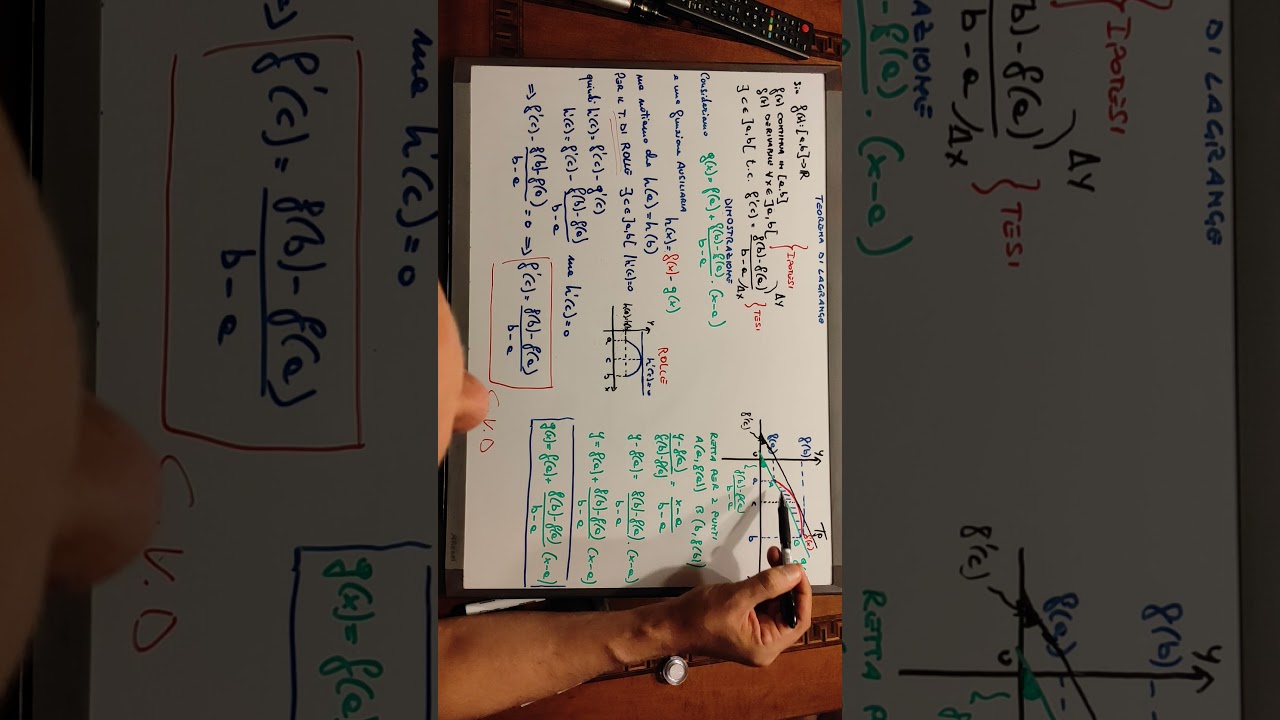 TEOREMA DI LAGRANGE
Sia f(x): [a,b]→R
f(x) CONTINUA IN [a,b]
f(x) DERIVABILE ∀x∈]a,b[
} IPOTESI
∃ c∈]a,b[ t.c. f'(c) = f(b)-f(a) / b-a
ΔY
Δx
} TESI
DIMOSTRAZIONE
Consideriamo g(x) = f(a) + f(b)-f(a) / b-a · (x-a)
e una funzione AUSILIARIA h(x) = f(x) - g(x)
ma notiamo che h(a) = h(b)
PER IL T. DI ROLLE ∃ c∈]a,b[ / h'(c)=0
quindi h'(c) = f'(c) - g'(c)
h'(c) = f'(c) - f(b)-f(a) / b-a ma h'(c) = 0
=> f'(c) - f(b)-f(a) / b-a = 0 => f'(c) = f(b)-f(a) / b-a
C.V.D
ROLLE
h'(c)=0
y
a c b x
y
f(b)
f(a)
f'(c)
0 a c b
f(b)-f(a) / b-a
RETTA PER 2 PUNTI
A(a, f(a)) B(b, f(b))
y-f(a) / f(b)-f(a) = x-a / b-a
y-f(a) = f(b)-f(a) / b-a · (x-a)
y = f(a) + f(b)-f(a) / b-a · (x-a)
g(x) = f(a) + f(b)-f(a) / b-a · (x-a)